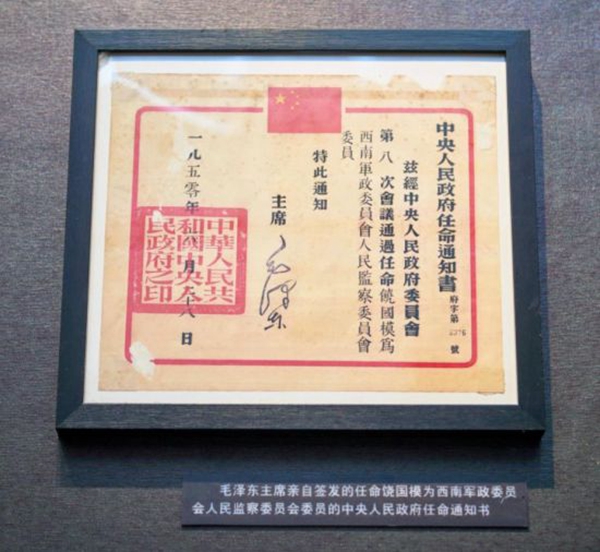 中央人民政府任命通知書 府字第 2376 號
茲經中央人民政府委員會
第八次會議通過任命饒國模爲
西南軍政委員會人民監察委員會
委員
特此通知
主席 毛澤東
一九五零年 月 十八日
中華人民共
和國中央人
民政府之印
毛泽东主席亲自签发的任命饶国模为西南军政委员
会人民监察委员会委员的中央人民政府任命通知书